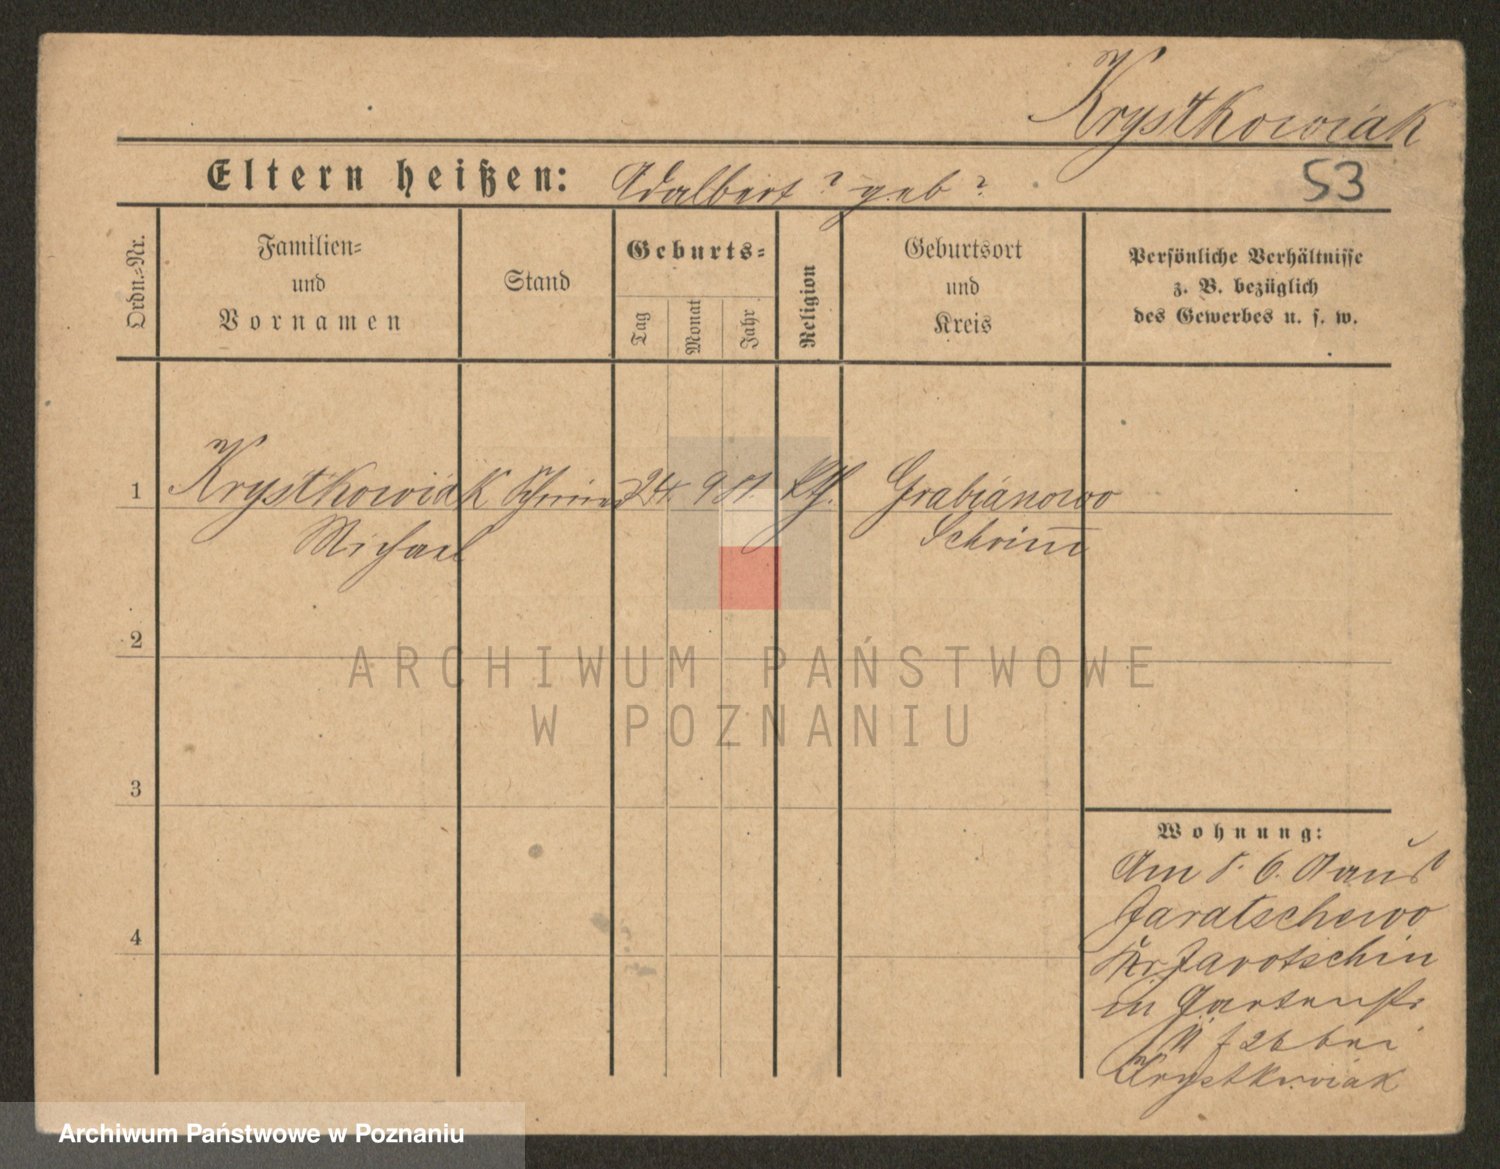 Krystkowiak
53
Eltern heißen: Adalbert ? geb ?
Ordn.-Nr.
Familien-
und
Vornamen
Stand
Geburts-
Tag
Monat
Jahr
Religion
Geburtsort
und
Kreis
Persönliche Verhältnisse
z. B. bezüglich
des Gewerbes u. s. w.
1 Krystkowiak Schmied 24. 9 81. kth. Grabianowo
Michael Schrimm
2
ARCHIWUM PAŃSTWOWE
W POZNANIU
3
Wohnung:
Am 8. 6. 0 aus
Jaratschewo
4
Kr. Jarotschin
in Gartenstr.
26 bei
Krystkowiak
Archiwum Państwowe w Poznaniu